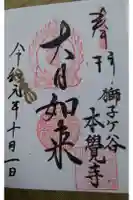 奉拝
獅子ヶ谷
本覺寺
大日如来
令和元年十月一日